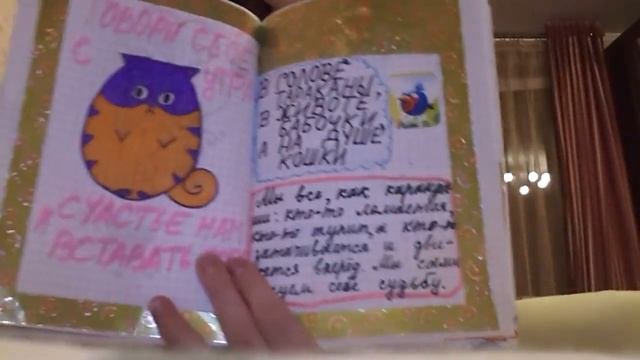 ГОВОРИ СЕБЕ
С УТРА
СЧАСТЬЕ НАМ
ВСТАВАТЬ
В ГОЛОВЕ
ТАРАКАНЫ,
В ЖИВОТЕ
БАБОЧКИ,
А НА ДУШЕ
КОШКИ
Мы все, как каранда
ши: кто-то ломается,
кто-то тупит, а кто-то
затачивается и дви-
жется вперёд. Мы сами
рисуем себе судьбу.